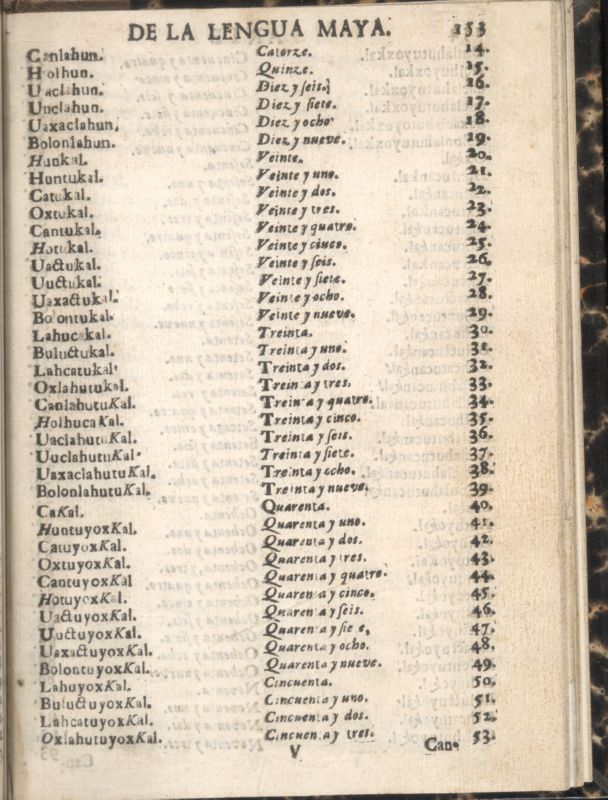 DE LA LENGUA MAYA. 153
Canlahun. Catorze. 14.
Holhun. Quinze. 15.
Uaclahun. Diez y seis. 16.
Uuclahun. Diez y siete. 17.
Uaxaclahun. Diez y ocho 18.
Bolonlahun. Diez y nueve. 19.
Hunkal. Veinte. 20.
Huntukal. Veinte y uno. 21.
Catukal. Veinte y dos. 22.
Oxtukal. Veinte y tres. 23.
Cantukal. Veinte y quatro. 24.
Hotukal. Veinte y cinco. 25.
Uactukal. Veinte y seis. 26.
Uuctukal. Veinte y siete. 27.
Uaxactukal. Veinte y ocho. 28.
Bolontukal. Veinte y nueve. 29.
Lahucakal. Treinta. 30.
Buluctukal. Treinta y uno. 31.
Lahcatukal. Treinta y dos. 32.
Oxlahutukal. Treinta y tres. 33.
CanlahutuKal. Treinta y quatro. 34.
HolhucaKal. Treinta y cinco. 35.
UaclahutuKal. Treinta y seis. 36.
UuclahutuKal. Treinta y siete. 37.
UaxaclahutuKal. Treinta y ocho. 38.
BolonlahutuKal. Treinta y nueve. 39.
CaKal. Quarenta. 40.
HuntuyoxKal. Quarenta y uno. 41.
CatuyoxKal. Quarenta y dos. 42.
OxtuyoxKal. Quarenta y tres. 43.
CantuyoxKal Quarenta y quatro. 44.
HotuyoxKal. Quarenta y cinco. 45.
UactuyoxKal. Quarenta y seis. 46.
UuctuyoxKal. Quarenta y siete, 47.
UaxactuyoxKal. Quarenta y ocho. 48.
BolontuyoxKal. Quarenta y nueve. 49.
LahuyoxKal. Cincuenta. 50.
BuluctuyoxKal. Cincuenta y uno. 51.
LahcatuyoxKal. Cincuenta y dos. 52.
OxlahutuyoxKal. Cincuenta y tres. 53.
V Can.